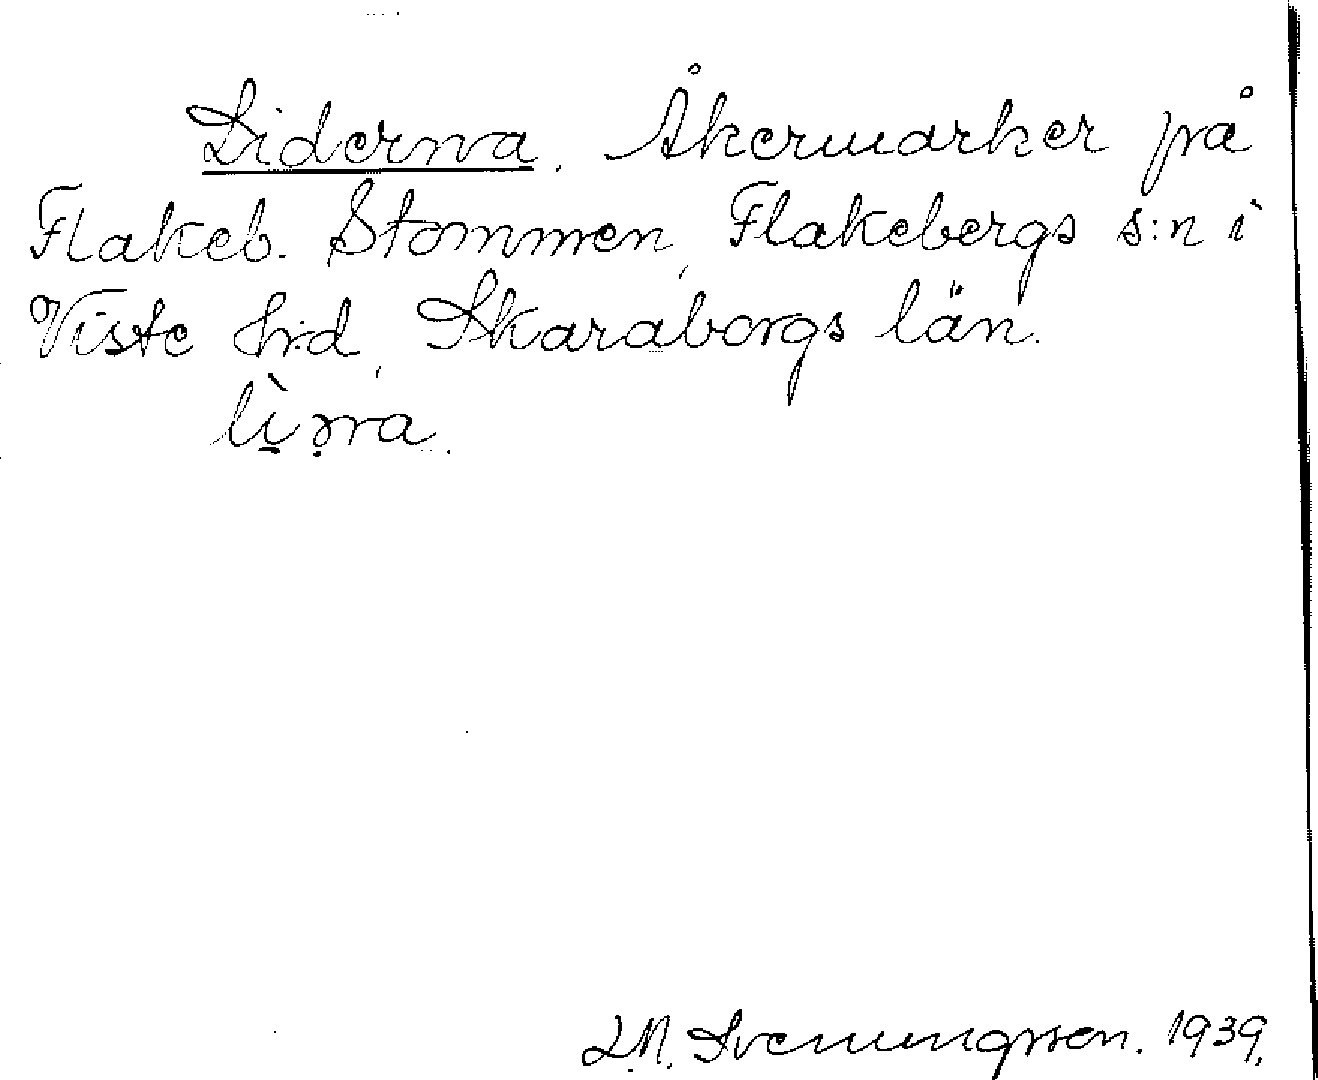 Liderna. Åkermarker på
Flakeb. Stommen, Flakebergs s:n i
Viste hrd, Skaraborgs län.
Svenungsson. 1939.